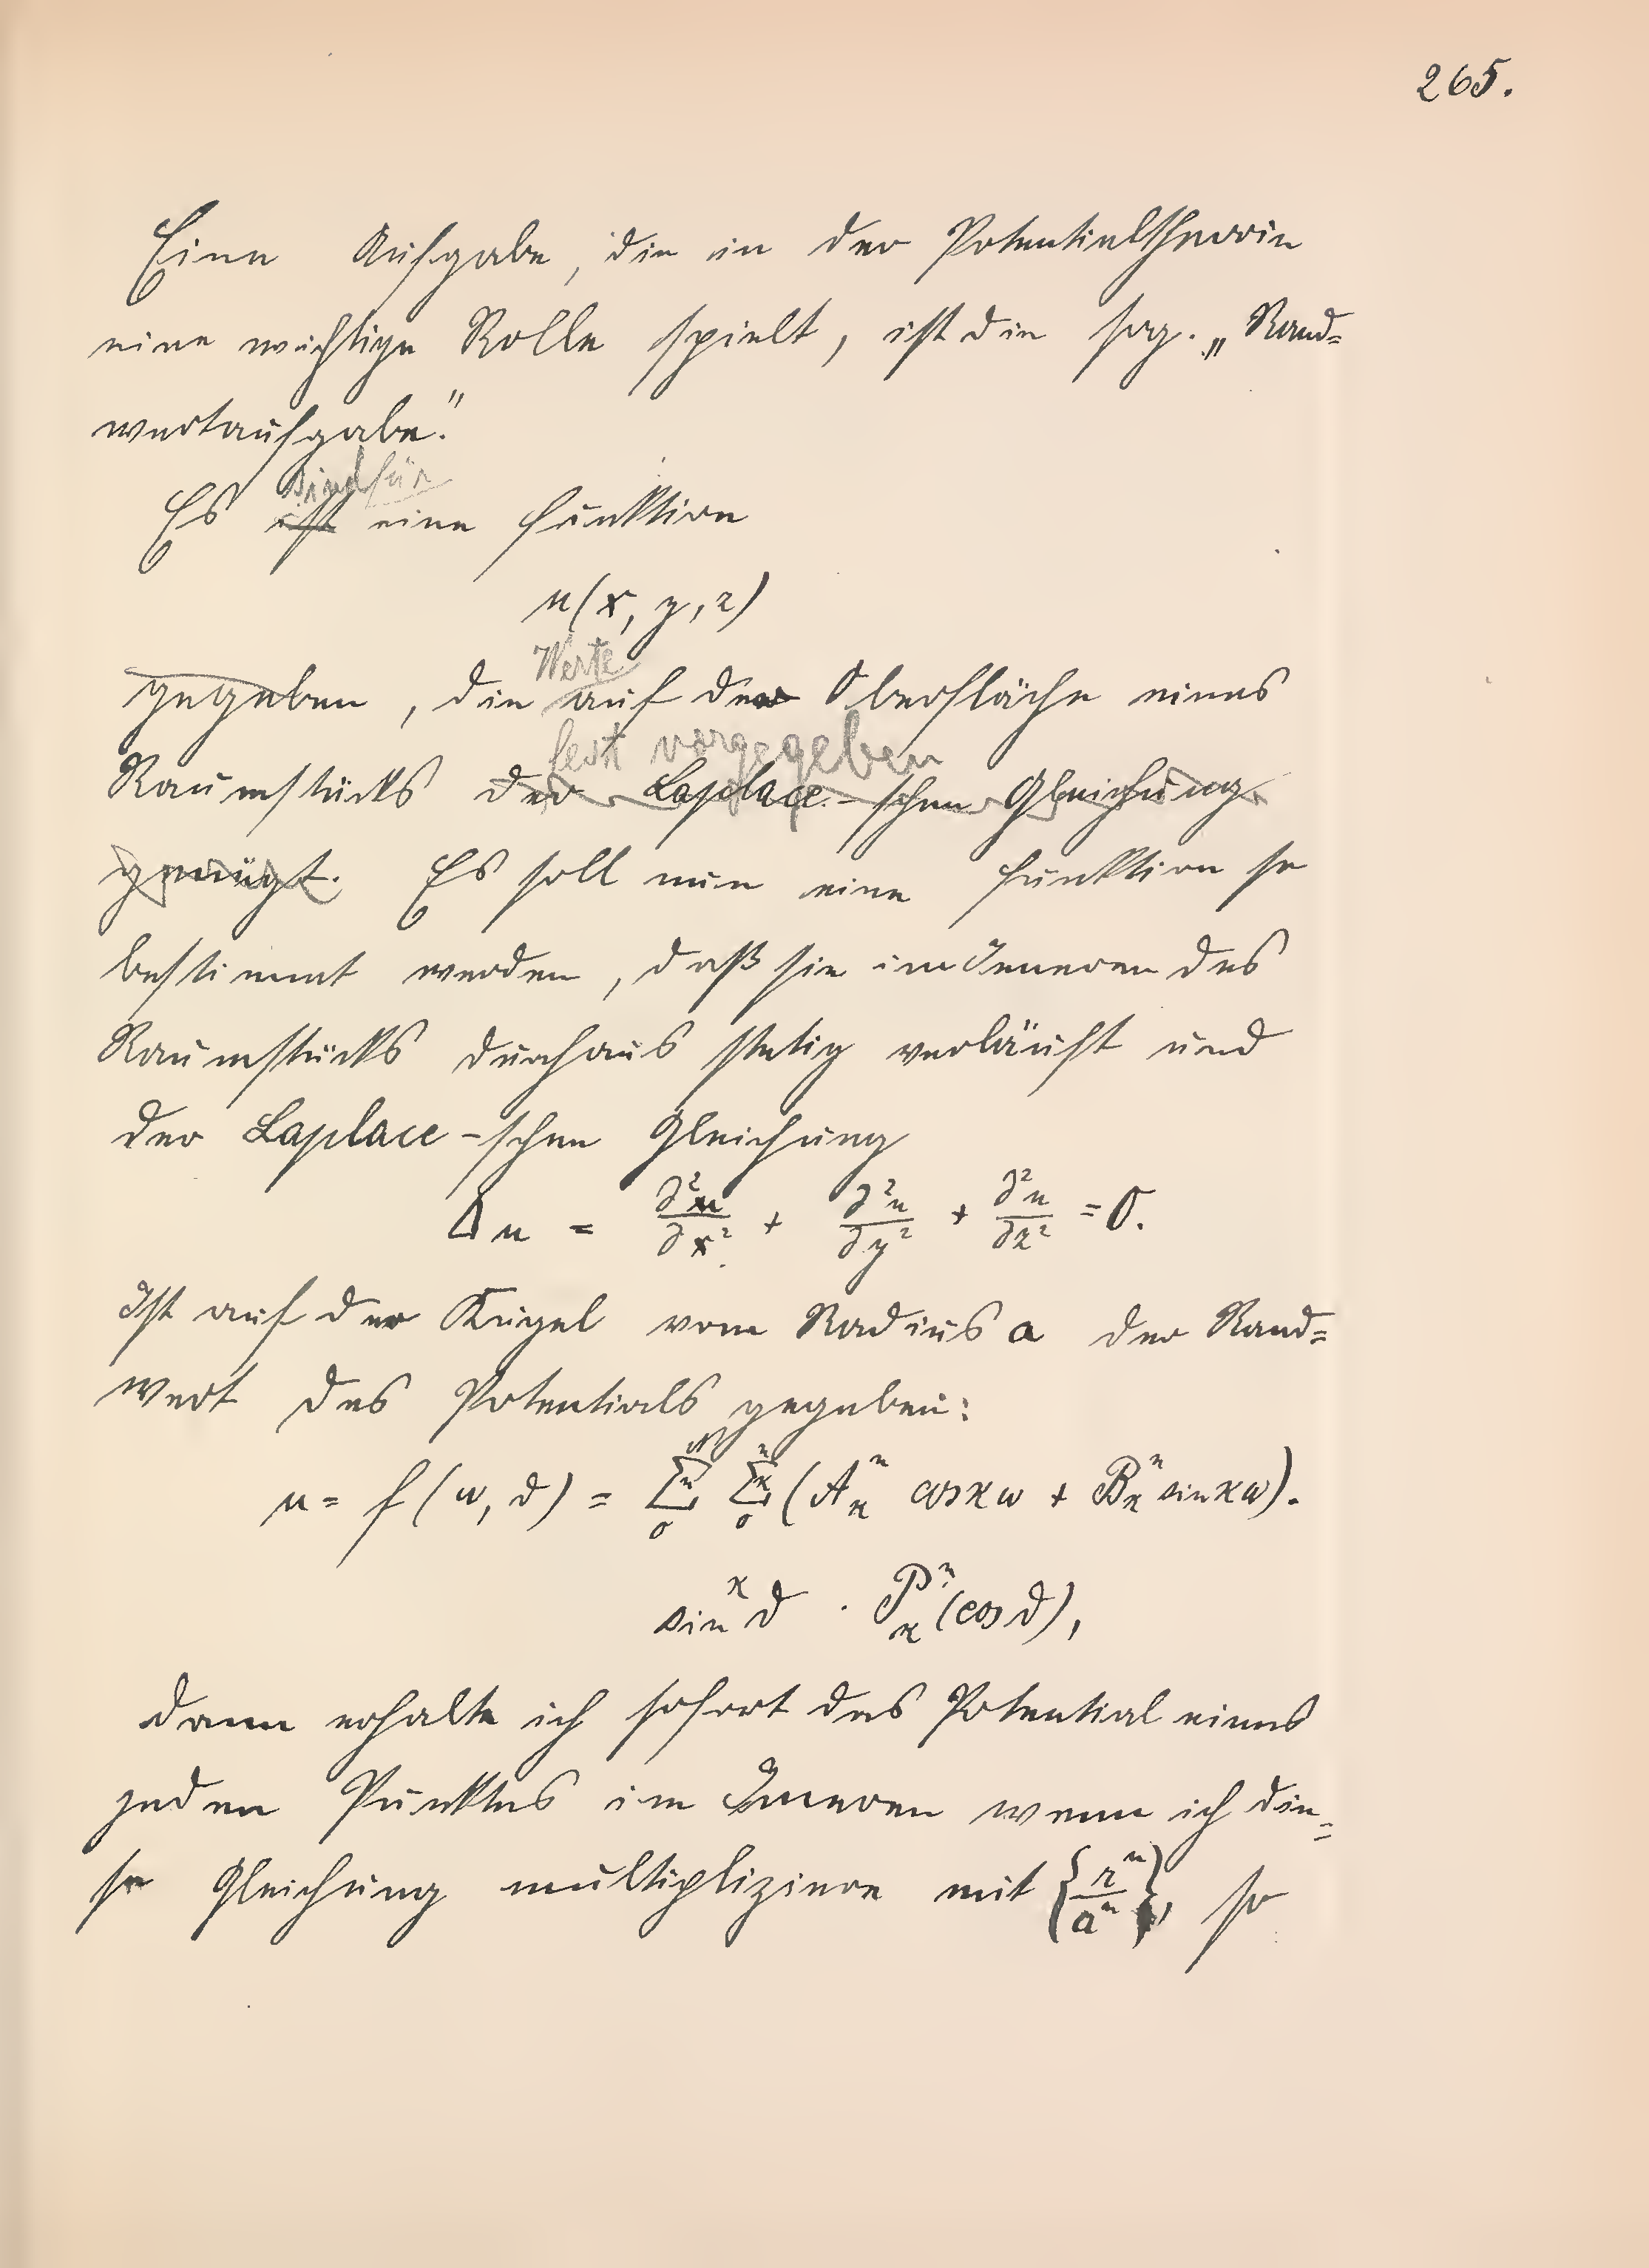 265.
Eine Aufgabe, die in der Potentialtheorie
eine wichtige Rolle spielt, ist die sog. „Rand=
wertaufgabe."
sind für
Es ist eine Funktion
u(x, y, z)
Werte
gegeben, die auf der Oberfläche eines
fest vorgegeben
Raumstücks der Laplace-schen Gleichung
genügt. Es soll nun eine Funktion so
bestimmt werden, daß sie im Inneren des
Raumstücks durchaus stetig verläuft und
der Laplace-schen Gleichung
Δu = ∂²u/∂x² + ∂²u/∂y² + ∂²u/∂z² = 0.
Ist auf der Kugel vom Radius a der Rand=
wert des Potentials gegeben:
u = f(ω, ϑ) = Σ Σ (Aₙⁿ cos ϰω + Bₙⁿ sin ϰω).
sin^ϰ ϑ · P^n_ϰ (cos ϑ),
dann erhalte ich sofort das Potential eines
jeden Punktes im Inneren wenn ich die=
se Gleichung multipliziere mit {rⁿ/aⁿ}, so